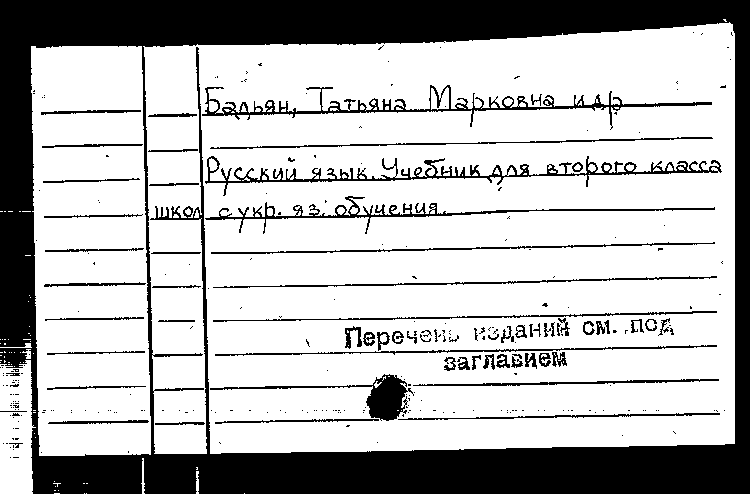 Бадьян, Татьяна Марковна и др
Русский язык. Учебник для второго класса
школ с укр. яз. обучения.
Перечень изданий см. под
заглавием